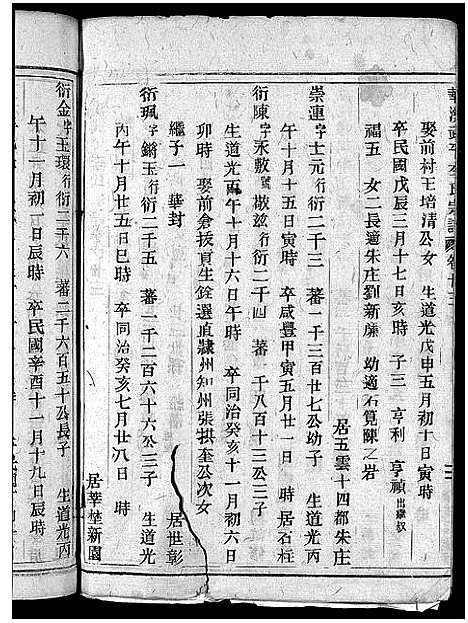 娶前村王培清公女　生道光戊申五月初十日寅時
卒民國戊辰三月十七日亥時　子三　亨利　亨禎出繼叔
福五　女二長適朱庄劉新廉　幼適石筧陳之岩
居五雲十四都朱庄
崇連字士元行衍二千三　蕃一千三百廿七公幼子　生道光丙
午十月十五日寅時　卒咸豐甲寅五月廿一日　時居石柱
衍陳字永敷號兹行衍二千四　蕃一千八百十三公三子
生道光丙午十月十六日午時　卒同治癸亥十一月初六日
卯時　娶前倉拔貢生銓選直隸州知州張拱奎公次女
繼子一　華封　居世彰
衍珮字鏘玉行衍二千五　蕃一千二百六十六公三子　生道光
丙午十月廿五日巳時　卒同治癸亥七月廿八日　時
居莘埜新園
衍金字玉環行衍二千六　蕃二千六百五十公長子　生道光丙
午十一月初一日辰時　卒民國辛酉十一月十九日辰時